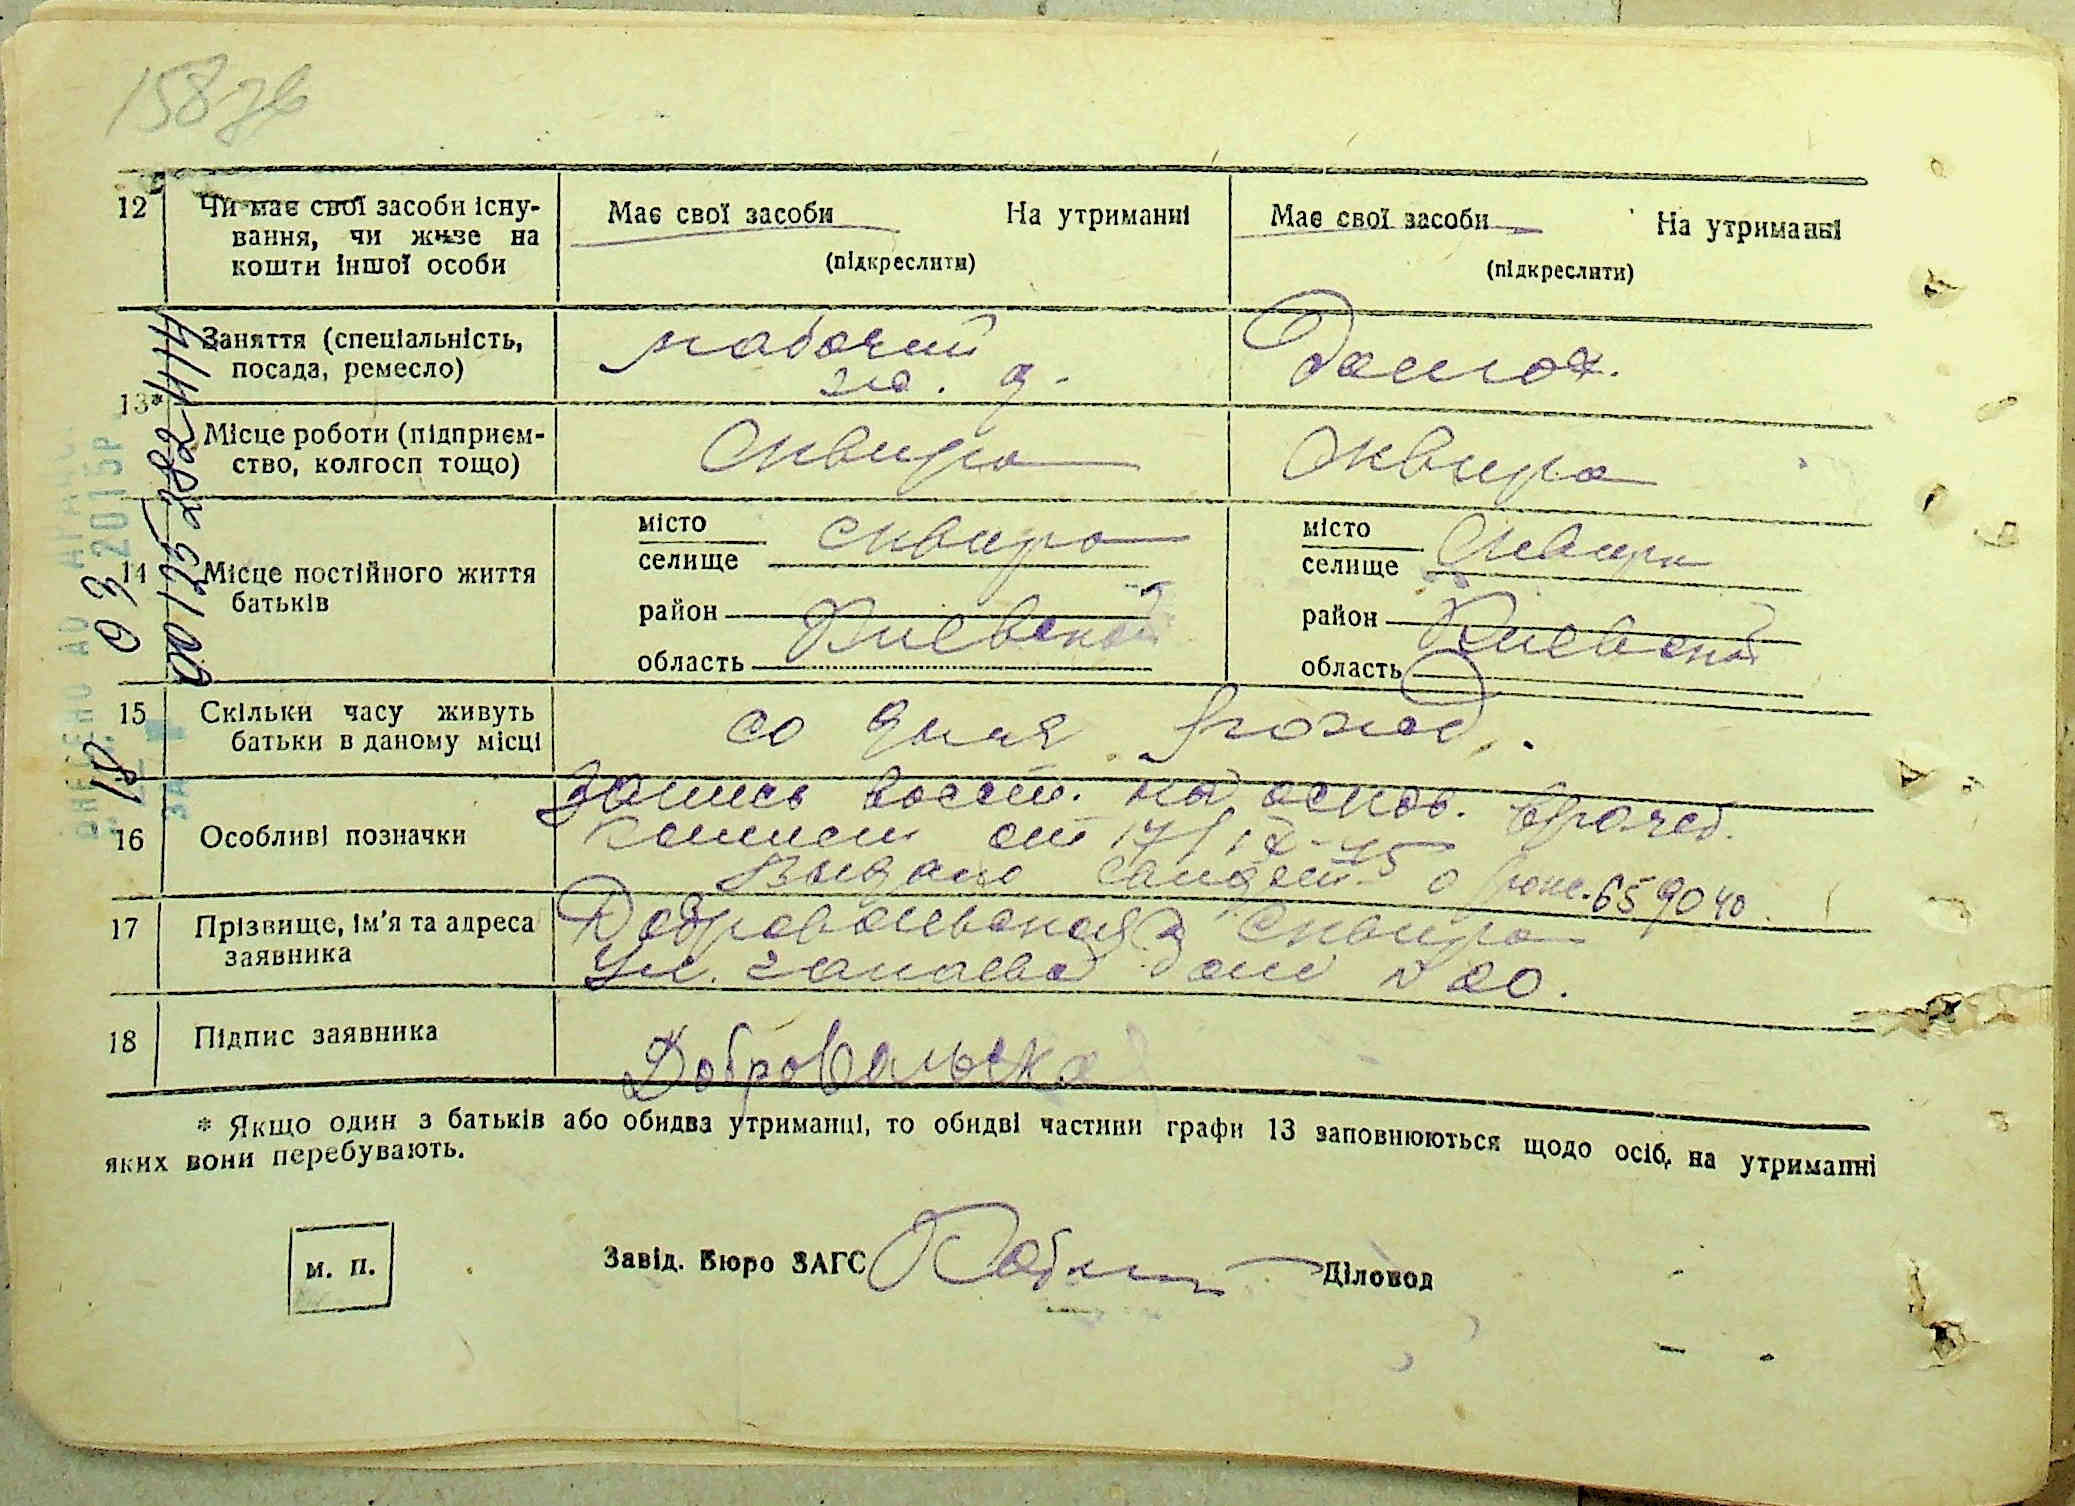 158 зв
12 Чи має свої засоби існу-
вання, чи живе на
кошти іншої особи
Має свої засоби На утриманні
(підкреслити)
Має свої засоби На утриманні
(підкреслити)
13*
Заняття (спеціальність,
посада, ремесло)
рабочий
ж. д.
Домох.
Місце роботи (підприєм-
ство, колгосп тощо)
Сквира
Сквира
14 Місце постійного життя
батьків
місто
селище
Сквира
район
область
Киевской
місто
селище
Сквира
район
область
Киевской
15 Скільки часу живуть
батьки в даному місці
со дня рожд.
16 Особливі позначки
Запись восст. на основ. врачеб.
комисси от 17/
Выдано о рожд. 659040
17 Прізвище, ім'я та адреса
заявника
Добровольская Сквира
ул. Чапаева дом N 20.
18 Підпис заявника
Добровольска
* Якщо один з батьків або обидва утриманці, то обидві частини графи 13 заповнюються щодо осіб, на утриманні
яких вони перебувають.
м. п.
Завід. Бюро ЗАГС
Діловод
03 2015р
00125272882
18